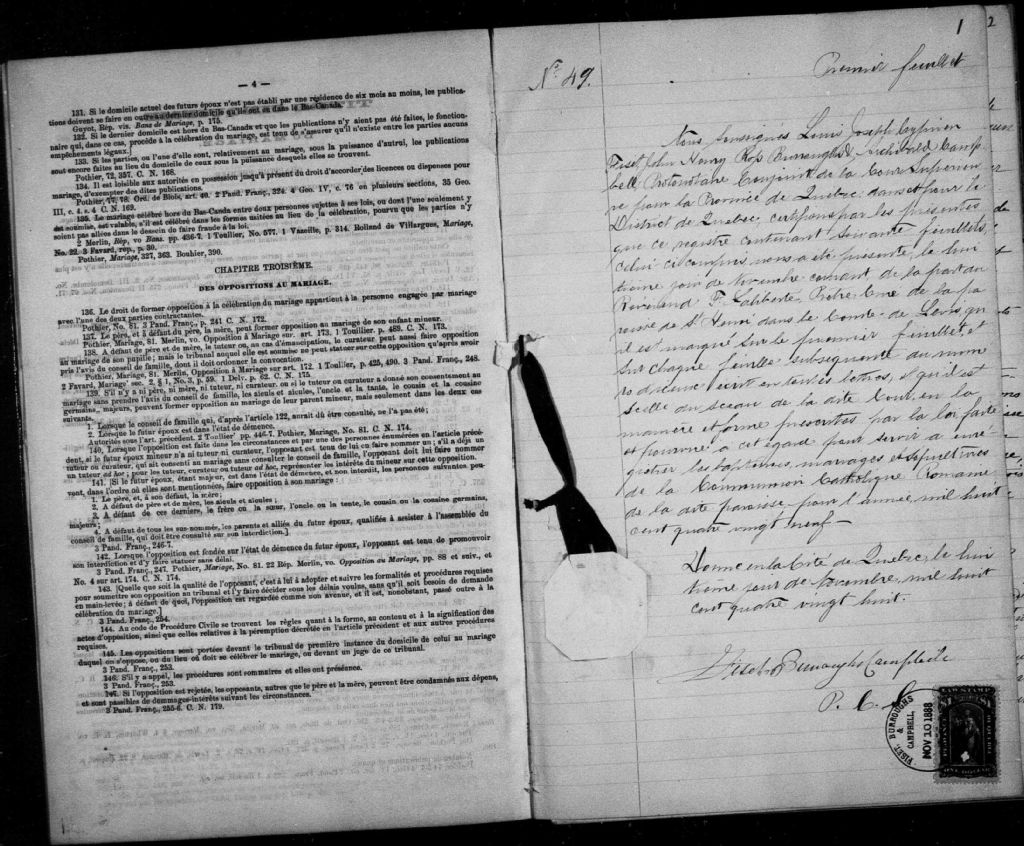 — 4 —
131. Si le domicile actuel des futurs époux n'est pas établi par une résidence de six mois au moins, les publica-
tions doivent se faire en outre au dernier domicile qu'ils ont eu dans le Bas-Canada.
Guyot, Rép. vis. Bans de Mariage, p. 175.
132. Si le dernier domicile est hors du Bas-Canada et que les publications n'y aient pas été faites, le fonction-
naire qui, dans ce cas, procède à la célébration du mariage, est tenu de s'assurer qu'il n'existe entre les parties aucun
empêchements légaux.]
133. Si les parties, ou l'une d'elle sont, relativement au mariage, sous la puissance d'autrui, les publications
sont encore faites au lieu du domicile de ceux sous la puissance desquels elles se trouvent.
Pothier, 72, 357. C. N. 168.
134. Il est loisible aux autorités en possession jusqu'à présent du droit d'accorder des licences ou dispenses pour
mariage, d'exempter des dites publications.
Pothier, 77, 78. Ord. de Blois, art. 40. 2 Pand. Franç., 324. 4 Geo. IV, c. 76 en plusieurs sections, 35 Geo.
III, c. 4. s. 4 C. N. 169.
135. Le mariage célébré hors du Bas-Canda entre deux personnes sujettes à ses lois, ou dont l'une seulement y
est soumise, est valable, s'il est célébré dans les formes usitées au lieu de la célébration, pourvu que les parties n'y
soient pas allées dans le dessein de faire fraude à la loi.
2 Merlin, Rép, vo Bans. pp. 436-7. 1 Toullier, No. 577. 1 Vazeille, p. 314. Rolland de Villargues, Mariage,
No. 22. 3 Favard, rép., p. 30.
Pothier, Mariage, 327, 363. Bouhier, 390.
CHAPITRE TROISIÈME.
DES OPPOSITIONS AU MARIAGE.
136. Le droit de former opposition à la célébration du mariage appartient à la personne engagée par mariage
avec l'une des deux parties contractantes.
Pothier, No. 81. 3 Pand. Franç., p. 241 C. N. 172.
137. Le père, et à défaut du père, la mère, peut former opposition au mariage de son enfant mineur.
Pothier, Mariage, 81. Merlin, vo. Opposition à Mariage sur. art. 173. 1 Touillier. p. 489. C. N. 173.
138. A défaut de père et de mère, le tuteur, ou, au cas d'émancipation, le curateur, peut aussi faire opposition
au mariage de son pupille; mais le tribunal auquel elle est soumise ne peut statuer sur cette opposition qu'après avoir
pris l'avis du conseil de famille, dont il doit ordonner la convocation.
Pothier, Mariage, 81. Merlin, Opposition à Mariage sur art. 172. 1 Toullier, p. 425, 490. 3 Pand. Franç., 248.
2 Favard, Mariage' sec. 2, § 1, No. 3, p. 59. 1 Delv. p. 62. C. N. 175.
139. S'il n'y a ni père, ni mère, ni tuteur, ni curateur, ou si le tuteur ou curateur a donné son consentement au
mariage sans prendre l'avis du conseil de famille, les aïeuls et aïeules, l'oncle et la tante, le cousin et la cousine
germains, majeurs, peuvent former opposition au mariage de leur parent mineur, mais seulement dans les deux cas
suivants:
1. Lorsque le conseil de famille qui, d'après l'article 122, aurait dû être consulté, ne l'a pas été;
2. Lorsque le futur époux est dans l'état de démence.
Autorités sous l'art. précédent. 2 Toullier' pp. 446-7. Pothier, Mariage, No. 81. C. N. 174.
140. Lorsque l'opposition est faite dans les circonstances et par une des personnes énumérées en l'article précé-
dent, si le futur époux mineur n'a ni tuteur ni curateur, l'opposant est tenu de lui en faire nommer un; s'il a déjà un
tuteur ou curateur, qui ait consenti au mariage sans consulter le conseil de famille, l'opposant doit lui faire nommer
un tuteur ad hoc; pour les tuteur, curateur ou tuteur ad hoc, représenter les intérêts du mineur sur cette opposition.
141. Si le futur époux, étant majeur, est dans l'état de démence, et non interdit, les personnes suivantes peu-
vent, dans l'ordre où elles sont mentionnées, faire opposition à son mariage:
1. Le père, et, à son défaut, la mère;
2. A défaut de père et de mère, les aïeuls et aïeules;
3. A défaut de ces derniers, le frère ou la sœur, l'oncle ou la tante, le cousin ou la cousine germains,
majeurs;
4. A défaut de tous les sus-nommés, les parents et alliés du futur époux, qualifiés à assister à l'assemblée du
conseil de famille, qui doit être consulté sur son interdiction.]
3 Pand. Franç., 246-7.
142. Lorsque l'opposition est fondée sur l'état de démence du futur époux, l'opposant est tenu de promouvoir
son interdiction et d'y faire statuer sans délai.
3 Pand. Franç., 247. Pothier, Mariage, No. 81. 22 Rép. Merlin, vo. Opposition au Mariage, pp. 88 et suiv., et
No. 4 sur art. 174. C. N. 174.
143. [Quelle que soit la qualité de l'opposant, c'est à lui à adopter et suivre les formalités et procédures requises
pour soumettre son opposition au tribunal et l'y faire décider sous les délais voulus, sans qu'il soit besoin de demande
en main-levée; à défaut de quoi, l'opposition est regardée comme non avenue, et il est, nonobstant, passé outre à la
célébration du mariage.]
3 Pand. Franç., 254.
144. Au code de Procédure Civile se trouvent les règles quant à la forme, au contenu et à la signification des
actes d'opposition, ainsi que celles relatives à la péremption décrétée en l'article précédent et aux autres procédures
requises.
145. Les oppositions sont portées devant le tribunal de première instance du domicile de celui au mariage
duquel on s'oppose, ou du lieu où doit se célébrer le mariage, ou devant un juge de ce tribunal.
3 Pand. Franç., 253.
146. S'il y a appel, les procédures sont sommaires et elles ont présence.
3 Pand. Franç., 253.
147. Si l'opposition est rejetée, les opposants, autres que le père et la mère, peuvent être condamnés aux dépens,
et sont passibles de dommages-intérêts suivant les circonstances.
3 Pand. Franç., 255-6. C. N. 179.
1
2
No. 49.
Premier feuillet
Nous soussignés Louis Joseph Cyprien
Fiset John Henry Ross Burroughs & Archibald Camp-
bell Protonotaire Conjoint de la Cour Supérieu
re pour la Province de Québec dans et pour le
District de Québec certifions par les présentes
que ce registre contenant soixante feuillets,
celui ci compris nous a été présenté, le hui
tième jour de Novembre courant de la part du
Révérend F. Laliberté Prêtre Curé de la pa
roisse de St Henri dans le Comté de Lévis qu
il est marqué sur le premier feuillet et
sur chaque feuillet subsequent du numé
ro d'icelui écrit en toutes lettres, et qu'il est
scellé du sceau de la dite Cour, en la
manière et forme prescrites par la loi faite
et pourvue à cet égard pour servir à enré-
gistrer les baptêmes, mariages et sépultures
de la Communion Catholique Romaine
de la dite paroisse, pour l'année, mil huit
cent quatre vingt neuf —
Donné en la Cité de Québec, le hui
tième jour de Novembre, mil huit
cent quatre vingt huit.
Fiset Burroughs Campbell
P. C. S.
FISET, BURROUGHS
&
CAMPBELL
NOV 10 1888
LAW STAMP
$1
QUEBEC
ONE DOLLAR